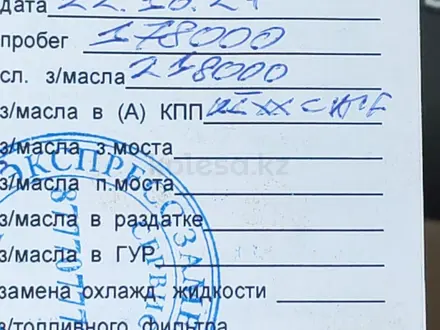 дата 22.10.24
пробег 178000
сл. з/масла 218000
з/масла в (А) КПП
з/масла з.моста
з/масла п.моста
з/масла в раздатке
з/масла в ГУР
замена охлажд. жидкости
з/топливного фильтра
ЭКСПРЕСС ЗАМЕ
СЕРВИС
8770777
kolesa.kz